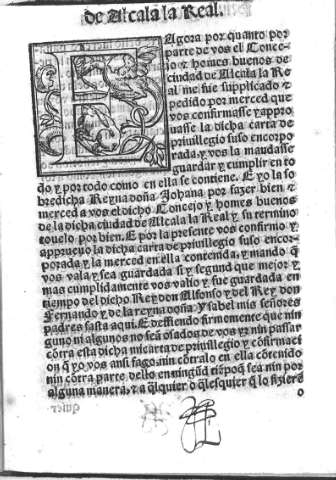 de Alcala la Real.
Agora por quanto por
parte de vos el Conce-
jo ⁊ homes buenos de
ciudad de Alcala la Re
al me fue supplicado ⁊
pedido por merced que
vos confirmasse y appro
uasse la dicha carta de
priuillegio suso encorpo
rada, y vos la mandasse
guardar y cumplir en to
do y por todo como en ella se contiene. E yo la so
bredicha Reyna doña Johana por fazer bien ⁊
merced a vos el dicho Concejo y homes buenos
de la dicha ciudad de Alcala la Real y su termino
touelo por bien. E por la presente vos confirmo y
apprueuo la dicha carta de priuillegio suso encor-
porada y la merced en ella contenida, y mando q̄
vos vala y sea guardada si y segund que mejor y
mas cumplidamente vos valio y fue guardada en
tiempo del dicho Rey don Alfonso y del Rey don
Fernando y de la reyna doña Ysabel mis señores
padres fasta aqui. E deffiendo firmemente que nin
guno ni algunos no seā osados de vos yr nin passar
cōtra esta dicha mi carta de priuillegio y cōfirmaciō
q̄ yo vos ansi fago nin cōtra lo en ella cōtenido
nin cōtra parte dello en ningūd tiēpo q̄ sea nin por
alguna manera, ⁊ a q̄lquier o q̄lesquier q̄ lo fizierē
o